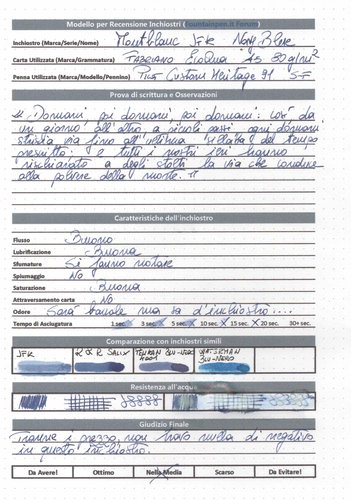 Modello per Recensione Inchiostri (fountainpen.it Forum)
Inchiostro (Marca/Serie/Nome) Montblanc JFK Navy Blue
Carta Utilizzata (Marca/Grammatura) FABRIANO Ecolina A5 80 g/m²
Penna Utilizzata (Marca/Modello/Pennino) Pilot Custom Heritage 91 SF
Prova di scrittura e Osservazioni
" Domani, poi domani, poi domani: così, da
un giorno all'altro a piccoli passi, ogni domani
striscia via fino all'ultima sillaba del tempo
prescritto: e tutti i nostri ieri hanno
rischiarato a degli stolti la via che conduce
alla polvere della morte. "
Caratteristiche dell'inchiostro
Flusso Buono
Lubrificazione Buona
Sfumature Si fanno notare
Spiumaggio No
Saturazione Buona
Attraversamento carta No
Odore Sarà banale ma sa d'inchiostro....
Tempo di Asciugatura 1 sec. 3 sec. 5 sec. 10 sec. 15 sec. 20 sec. 30+ sec.
Comparazione con inchiostri simili
JFK R&R SALIX PELIKAN 4001 BLU-NERO WATERMAN BLU-NERO
Resistenza all'acqua
Giudizio Finale
Tranne il prezzo, non trovo nulla di negativo
in questo inchiostro.
Da Avere! Ottimo Nella Media Scarso Da Evitare!